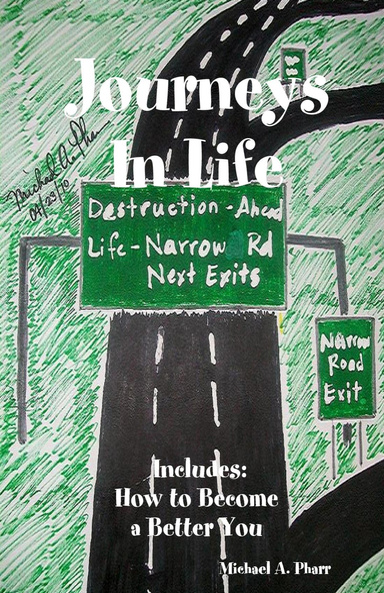 Journeys
In Life
Michael A. Pharr
Destruction - Ahead
Life - Narrow Rd
Next Exits
Narrow
Road
Exit
Includes:
How to Become
a Better You
Michael A. Pharr